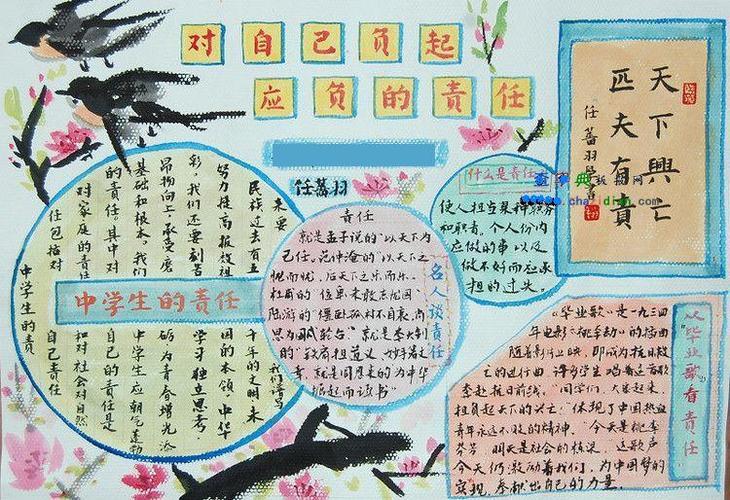 对自己负起
应负的责任
任蕃羽
天下興亡
匹夫有責
任蕃羽
什么是责任
使人担当某种职务
和职责，个人份内
应做的事以及
做不好而应承
担的过失。
中学生的责任
中学生的责
任包括对
自己责任
对家庭的责任
和对社会对自然
的责任。其中对
自己的责任是
基础和根本。我们
中学生应朝气蓬勃
昂扬向上承受磨
砺为青春增光添
彩，我们还要刻苦
学习独立思考
努力提高报效祖
国的本领，中华
民族过去有五
千年的文明，未
来要
我们谱写
名人谈责任
责任
就是孟子说的"以天下为
己任，范仲淹的"以天下之
忧而忧，后天下之乐而乐。
杜甫的"位卑未敢忘忧国"
陆游的"僵卧孤村不自哀，尚
思为国戍轮台"就是李大钊
的"铁肩担道义，妙手著文
章，就是周恩来的为中华
崛起而读书"
从毕业歌看责任
《毕业歌》是一九三四
年电影《桃李劫》的插曲
随着影片上映，即成为抗日救
亡的进行曲，许多学生唱着这首歌
李赴抗日前线。"同学们，大家起来，
担负起天下的兴亡！"体现了中国热血
青年永远不败的精神。"今天是桃李
芬芳 明天是社会的栋梁，这歌声
今天仍激励着我们，为中国梦的
实现，奉献出自己的力量。
查字典教程网
chazidian.com